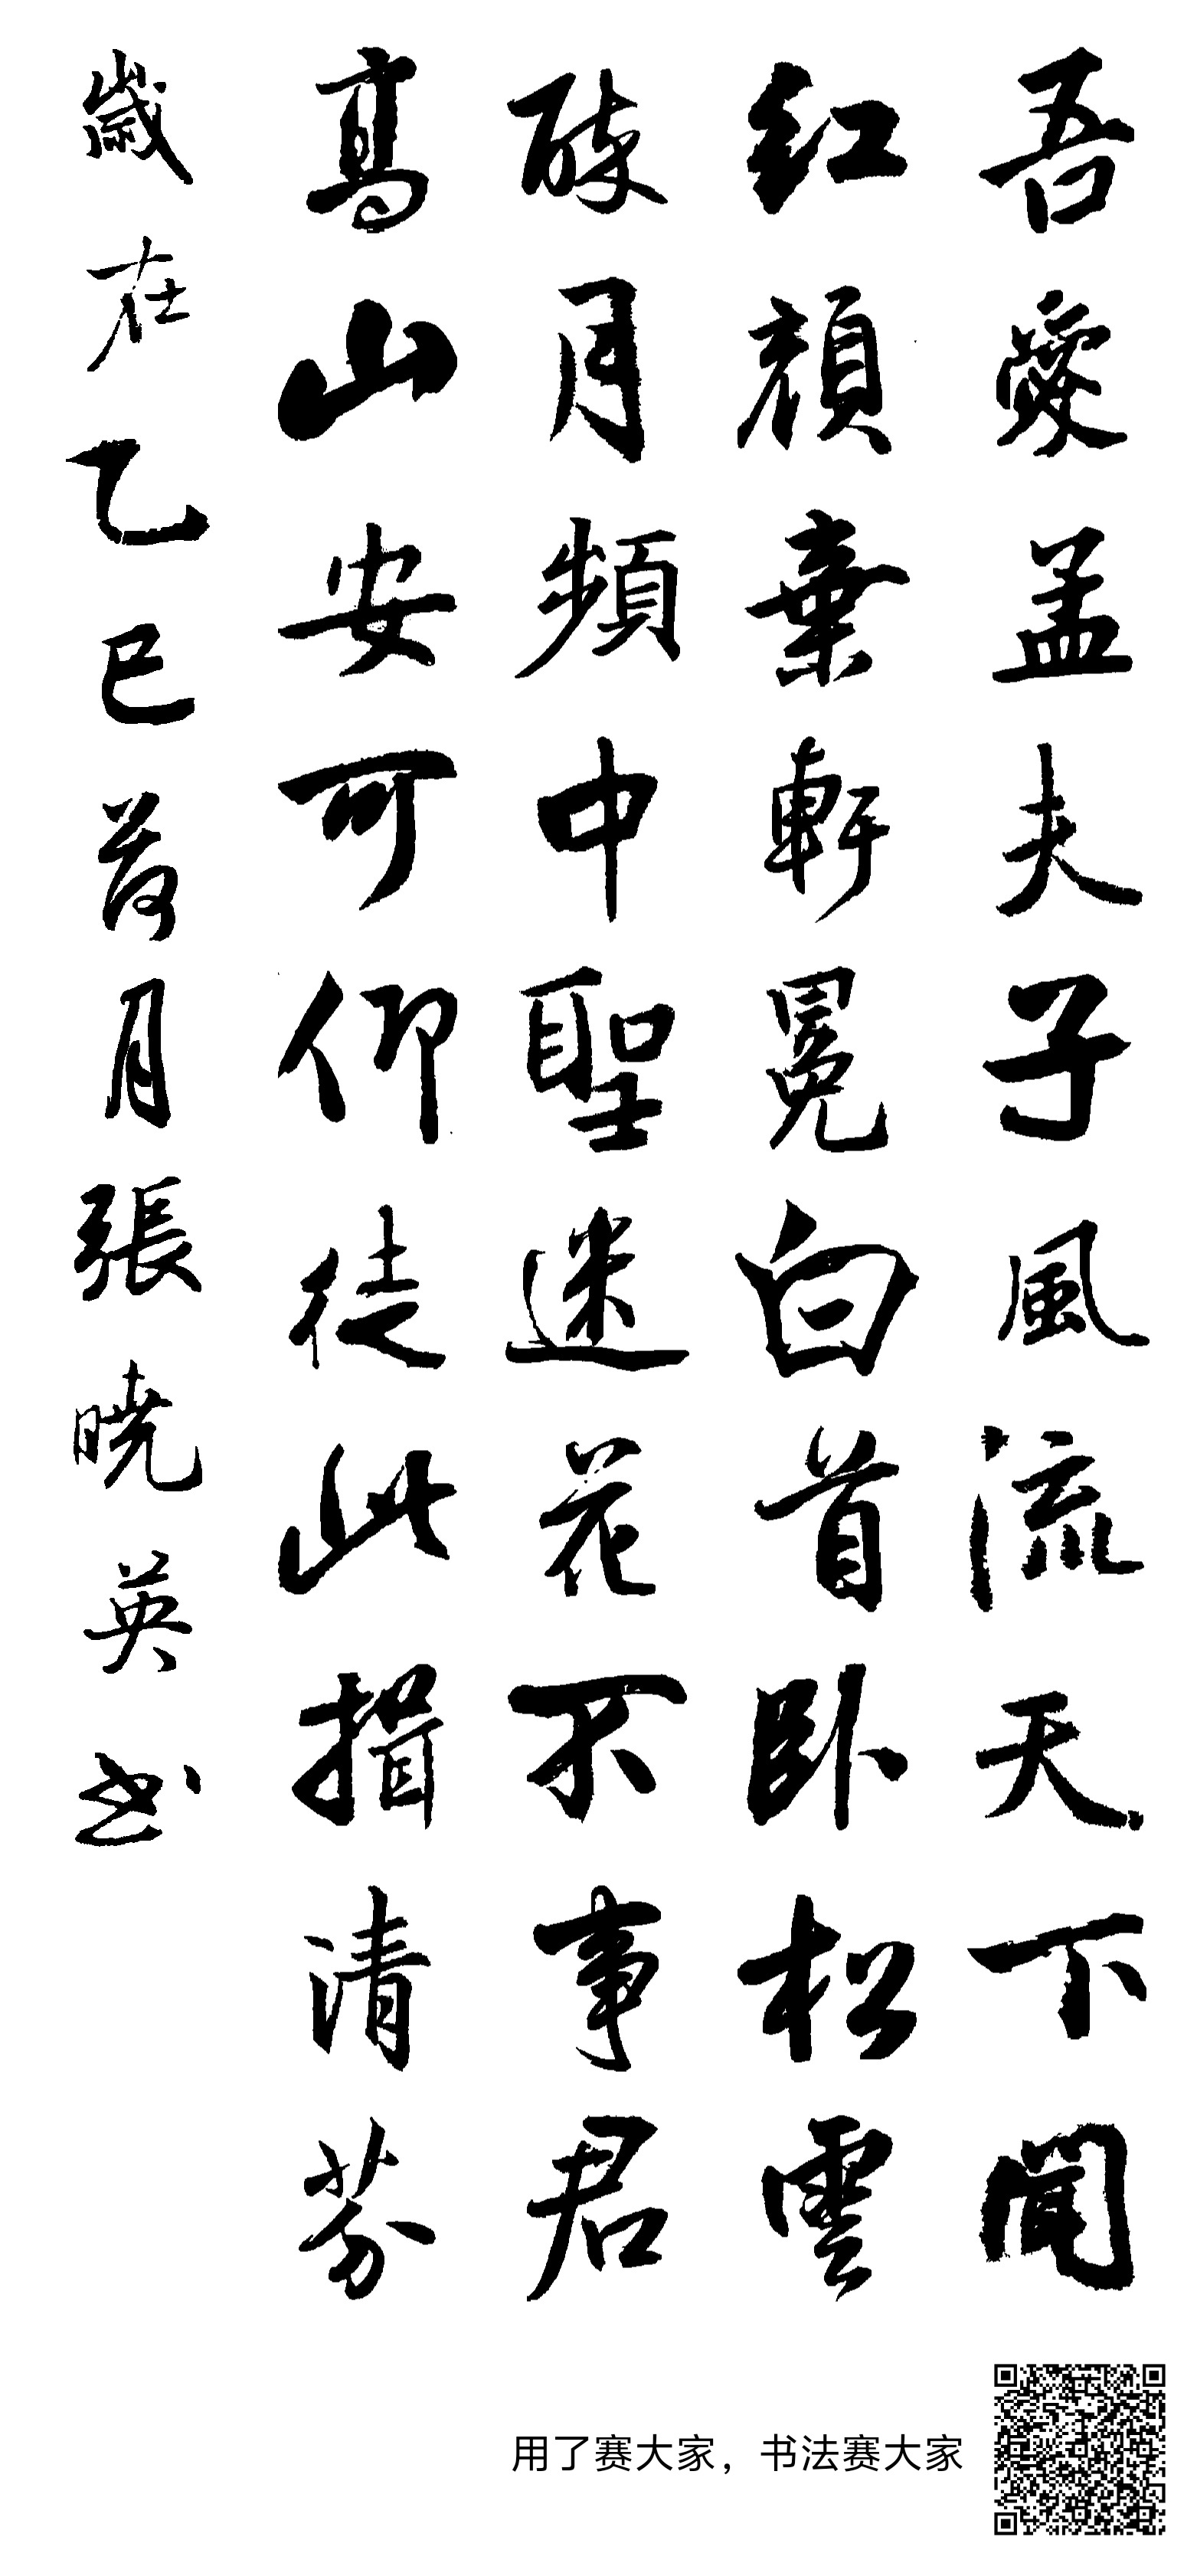 吾愛孟夫子風流天下聞
紅顏棄軒冕白首臥松雲
醉月頻中聖迷花不事君
高山安可仰徒此揖清芬
歲在乙巳荷月張曉英书
用了赛大家，书法赛大家